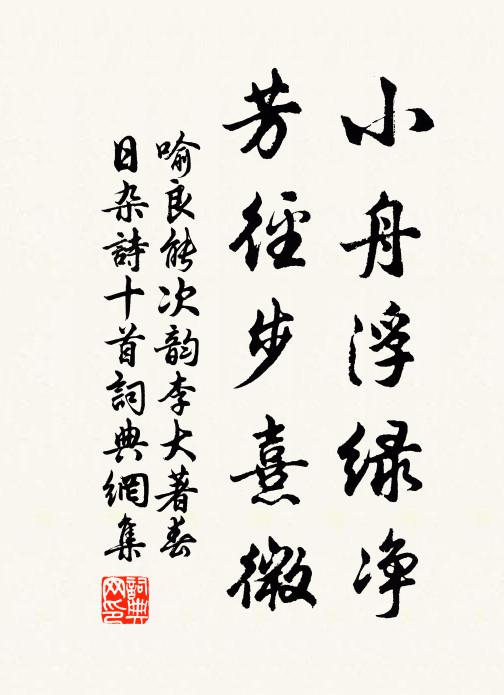 小舟浮绿净
芳徑步熹微
喻良能次韵李大著春
日杂詩十首詞典網集
詞典网印